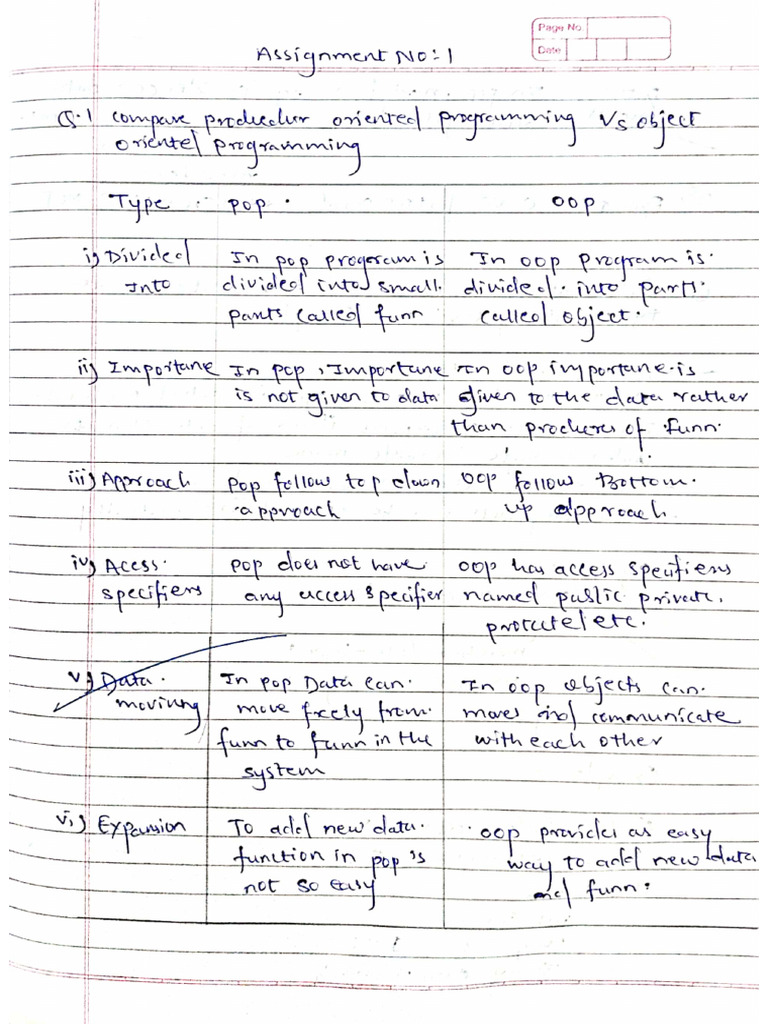 Page No.
Date
Assignment No:1
Q.1 compare producdur oriented programming Vs object
oriented programming
Type POP. OOP
i) Divided In pop program is In oop program is.
Into divided into small. divided. into part.
parts called funn called object.
ii) Importane In pop, Importane In oop importane.is
is not given to data given to the data rather
than producres of funn.
iii) Approach pop follow top down oop follow Bottom.
approach up approach
iv) Acess. pop does not have oop has access specifiers
specifiers any access specifier named public private.
protected etc.
v) Data. In pop Data can. In oop objects can.
moving move freely from. moves and communicate
funn to funn in the with each other
system
vi) Expansion To add new data. oop provides as easy
function in pop's way to add new data
not so easy and funn.